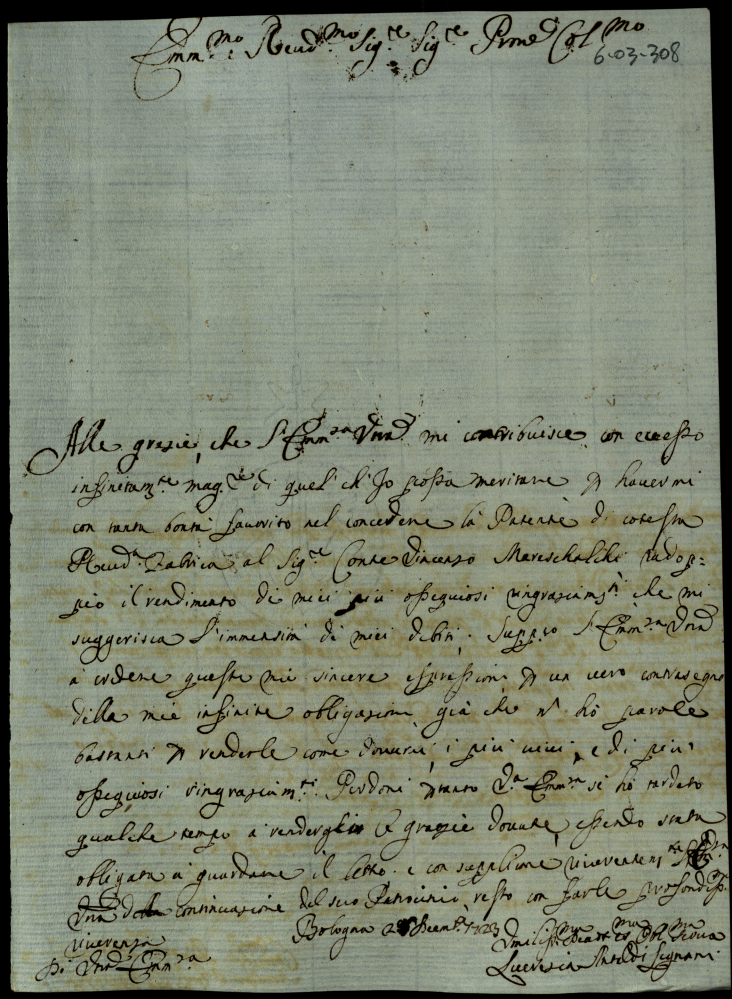 Emm.mo e Reud.mo Sig.re Sig.re Prone Col.mo
6-03-308
Alle grazie, che l'Emm.za Vra mi contribuisce con eccesso
infinitam.te mag.re di quel ch'Jo possa meritare p havermi
con tanta bontà favorito nel concederne la Patente di cotesta
Reud.a Fabrica al Sig.re Conte Vincenzo Mareschalchi radop=
pio il rendimento di miei più ossequiosi ringraziam.ti che mi
suggerisca l'immensità di miei debiti. Supp.co l'Emm.za Vra
a credere queste mie sincere espressioni p un vero contrasegno
della mie infinite obligazioni già che n hò parole
bastanti p renderle come dovrei, i più vivi, e di più
ossequiosi ringraziam.ti Perdoni p tanto V.a Emm.za si hò tardato
qualche tempo a renderglie le grazie dovute, essendo stata
obligata a guardare il letto. e con supplicare riverentem.te
Vra della continuazione del suo Patrocinio, resto con farle profondiss.a
riverenza
Bologna 1723
Di Vra Emm.za
Lucrezia Legnani